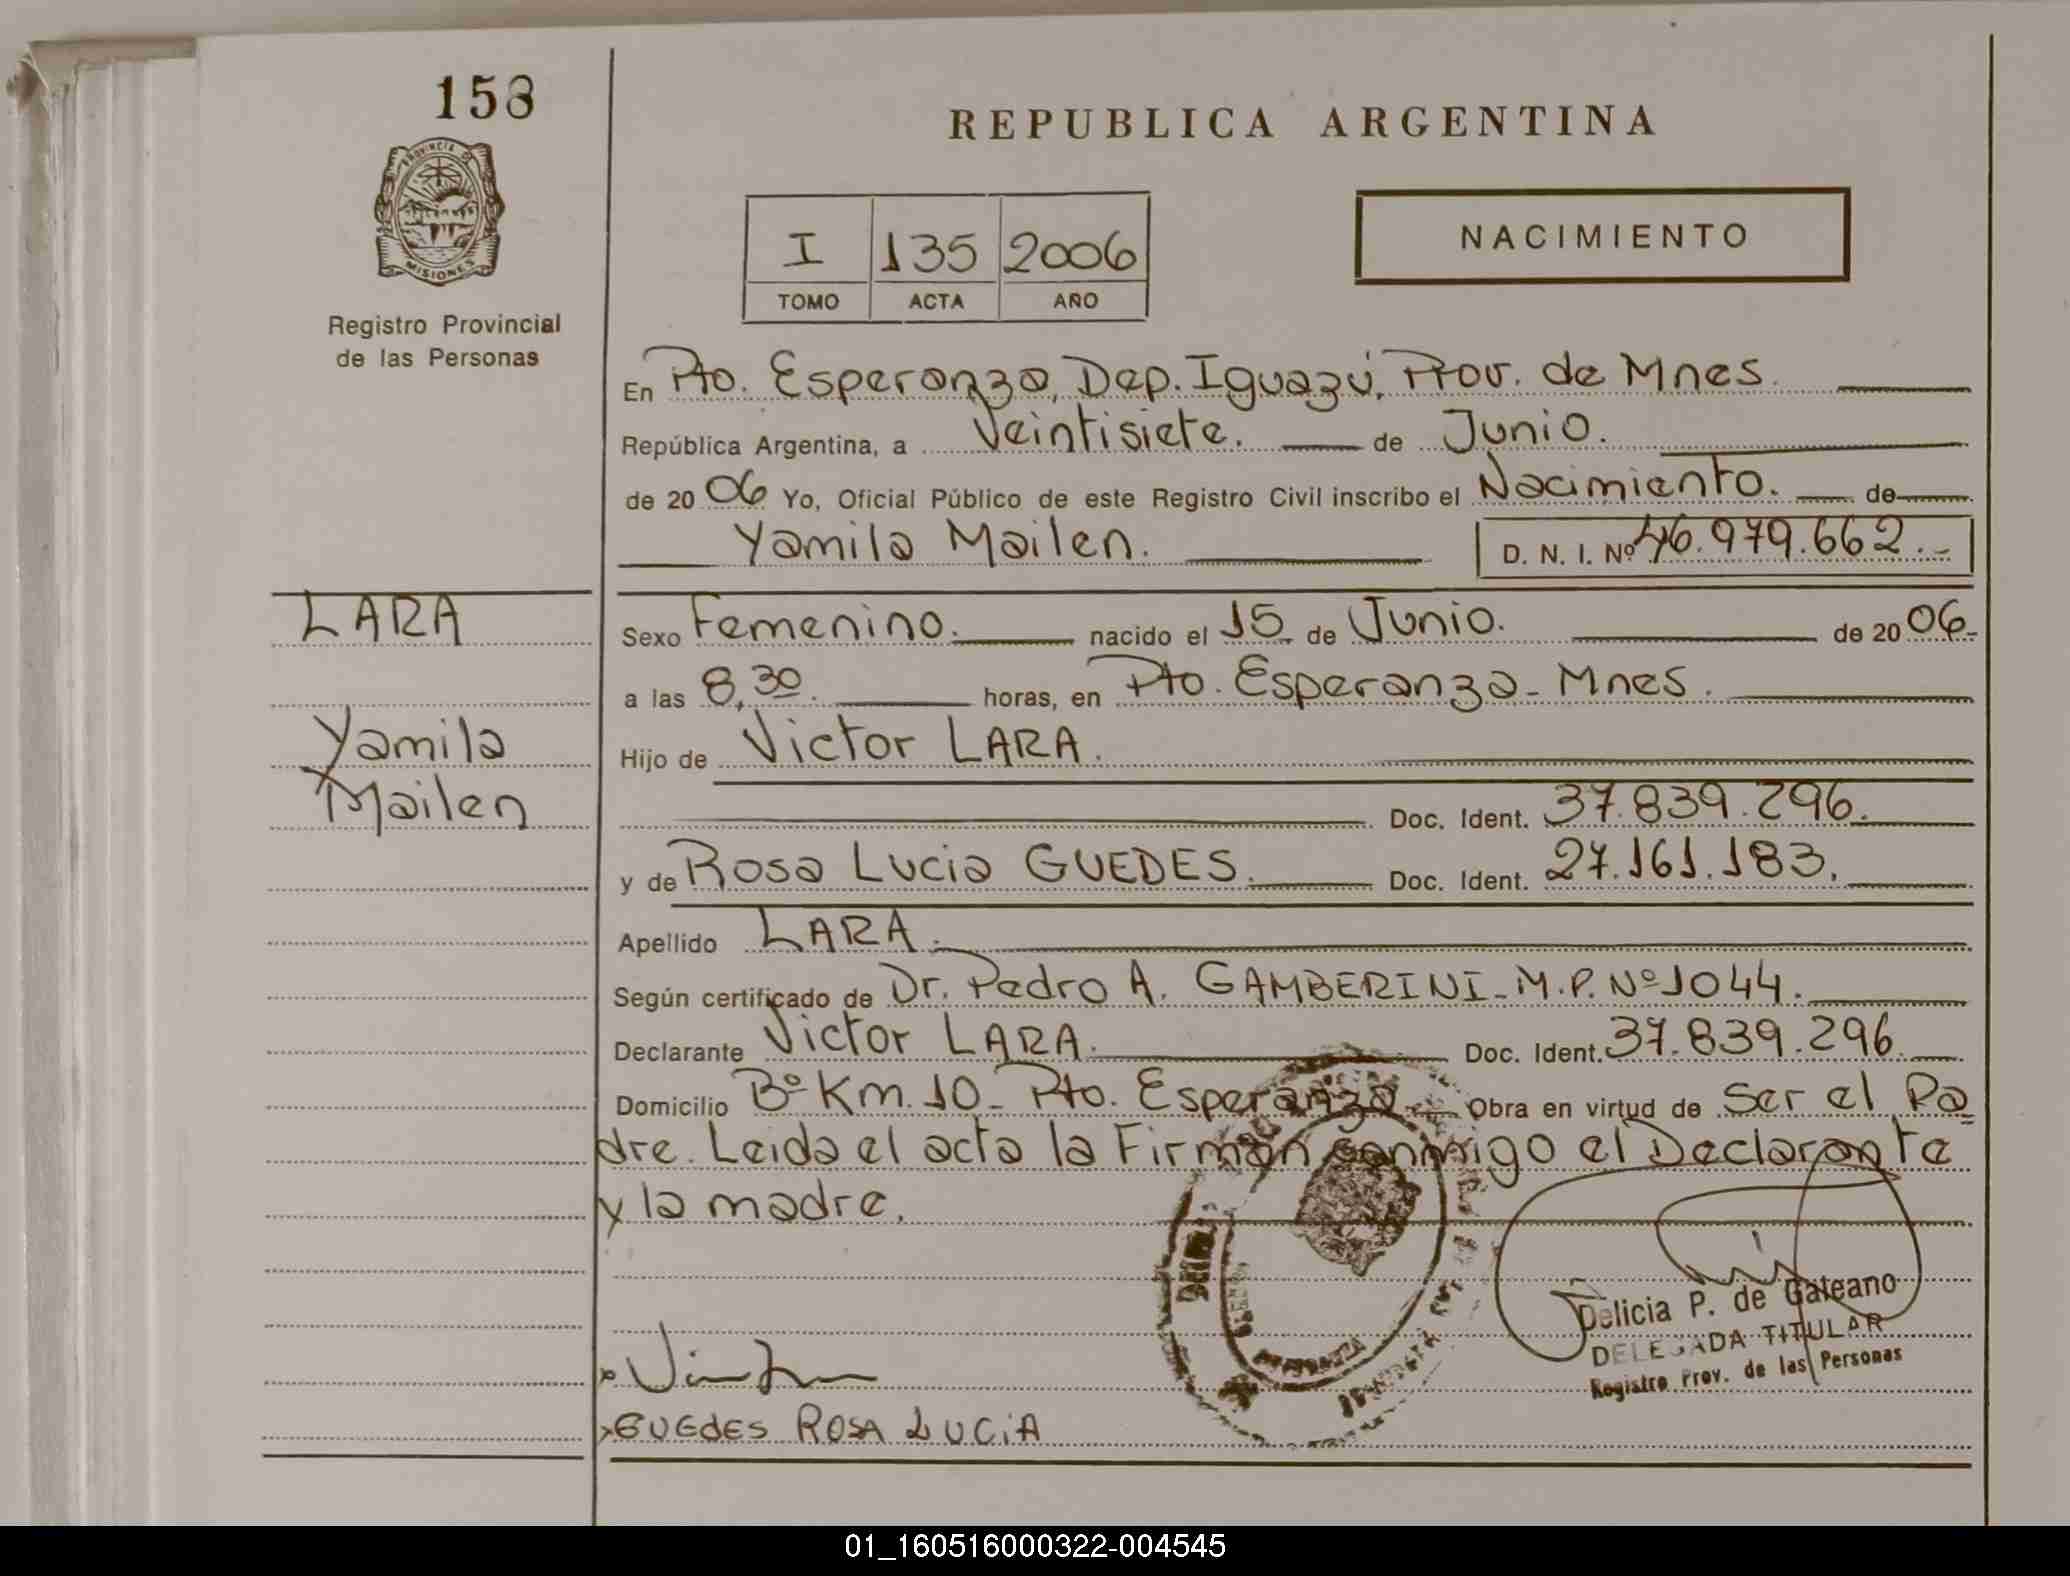 158
PROVINCIA DE
MISIONES
Registro Provincial
de las Personas
REPUBLICA ARGENTINA
I 135 2006
TOMO ACTA AÑO
NACIMIENTO
En Pto. Esperanza, Dep. Iguazú, Prov. de Mnes.
República Argentina, a Veintisiete. de Junio.
de 20 06 Yo, Oficial Público de este Registro Civil inscribo el Nacimiento. de
Yamila Mailen. D. N. I. Nº 46.979.662.-
LARA
Yamila
Mailen
Sexo Femenino. nacido el 15 de Junio. de 20 06-
a las 8,30. horas, en Pto. Esperanza - Mnes.
Hijo de Victor LARA.
Doc. Ident. 37.839.296.
y de Rosa Lucia GUEDES. Doc. Ident. 27.161.183.
Apellido LARA.
Según certificado de Dr. Pedro A. GAMBERINI - M.P. Nº 1044.
Declarante Victor LARA. Doc. Ident. 37.839.296.
Domicilio Bº Km. 10 - Pto. Esperanza Obra en virtud de Ser el Pa
dre. Leida el acta la Firman conmigo el Declarante
y la madre.
Delicia P. de Galeano
DELEGADA TITULAR
Registro Prov. de las Personas
GUEdES ROSA LUCiA
01_160516000322-004545